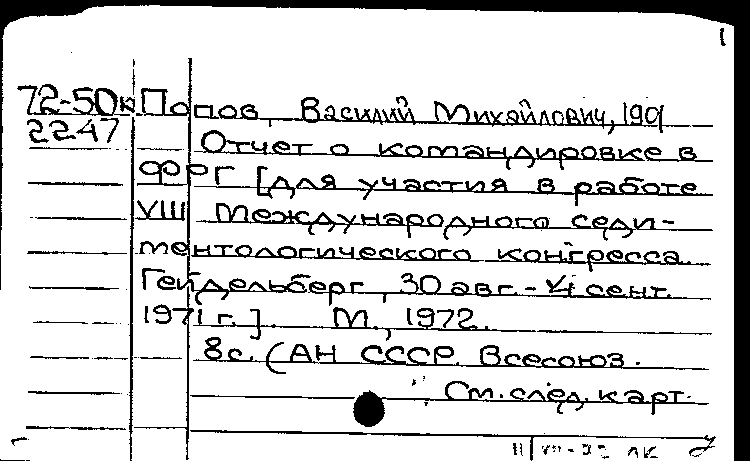 1
72-50к Попов, Василий Михайлович, 1901
2247 Отчет о командировке в
ФРГ [для участия в работе
VIII Международного седи-
ментологического конгресса.
Гейдельберг, 30 авг. - 4 сент.
1971 г.]. М., 1972.
8с. (АН СССР. Всесоюз.
См. след. карт.